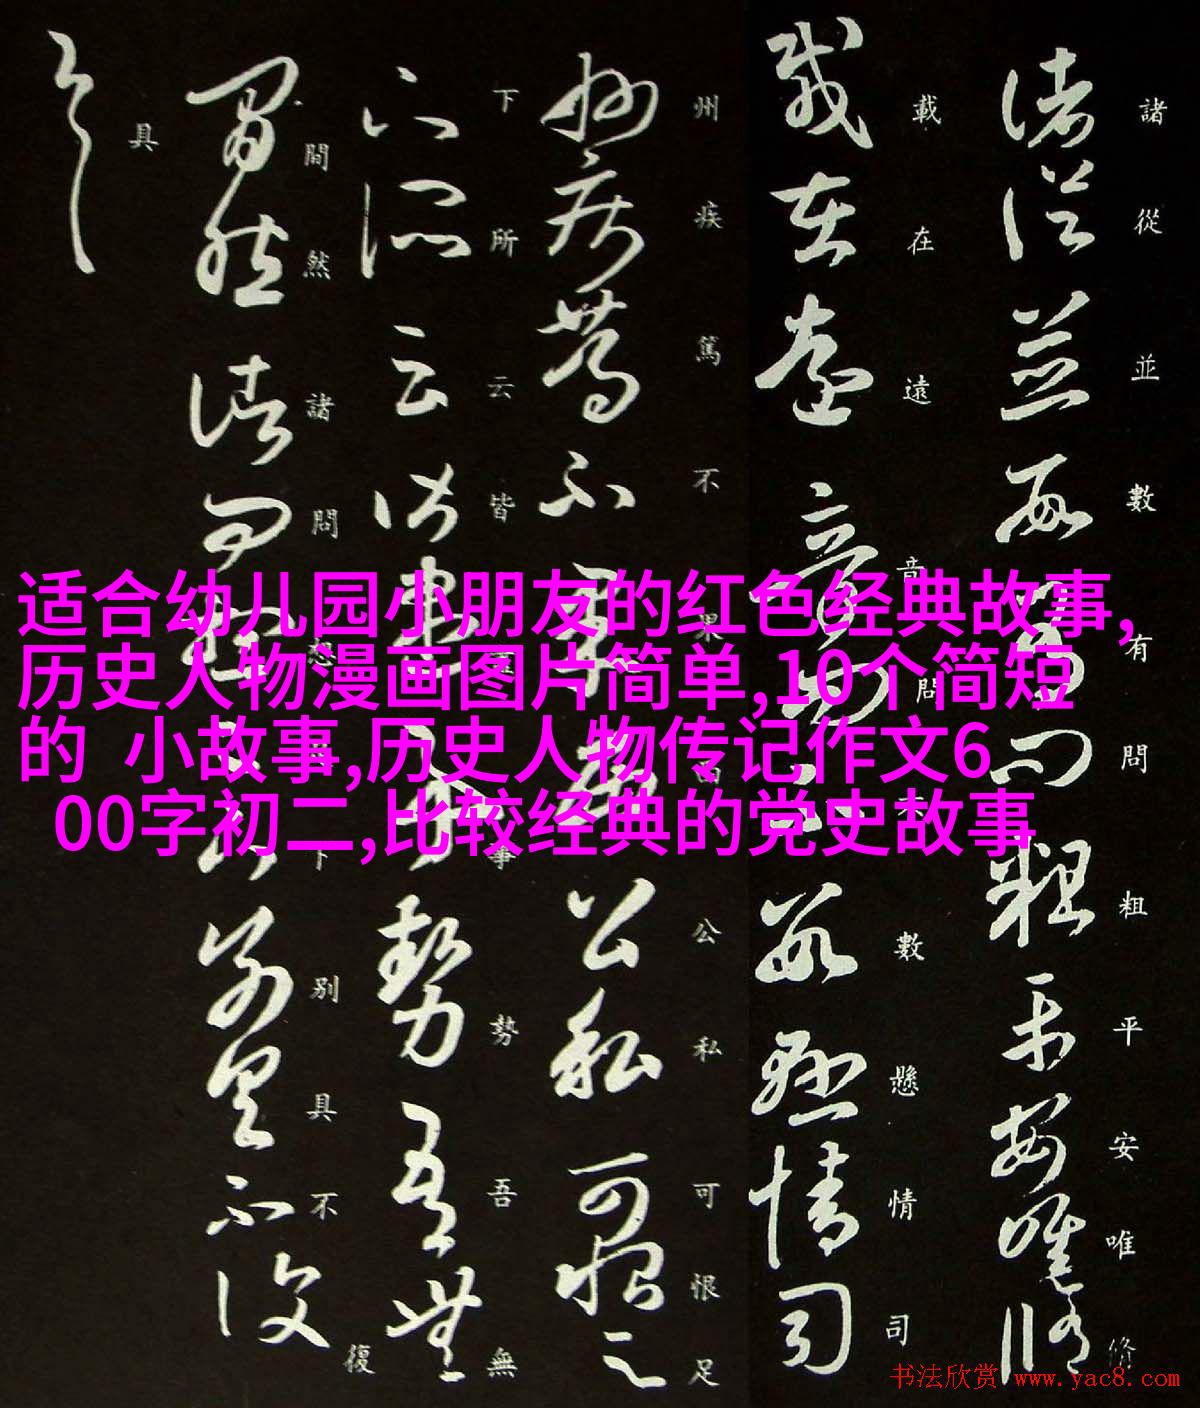 适合幼儿园小朋友的红色经典故事,
历史人物漫画图片简单,10个简短
的 小故事,历史人物传记作文6
00字初二,比较经典的党史故事
諸從並數有問粗平安唯修
載在遠音問不數懸情司
州疾篤不果西公私可恨足
下所云皆盡事勢吾無
間然諸問想足下別具不復
具
书法欣赏 www.yac8.com